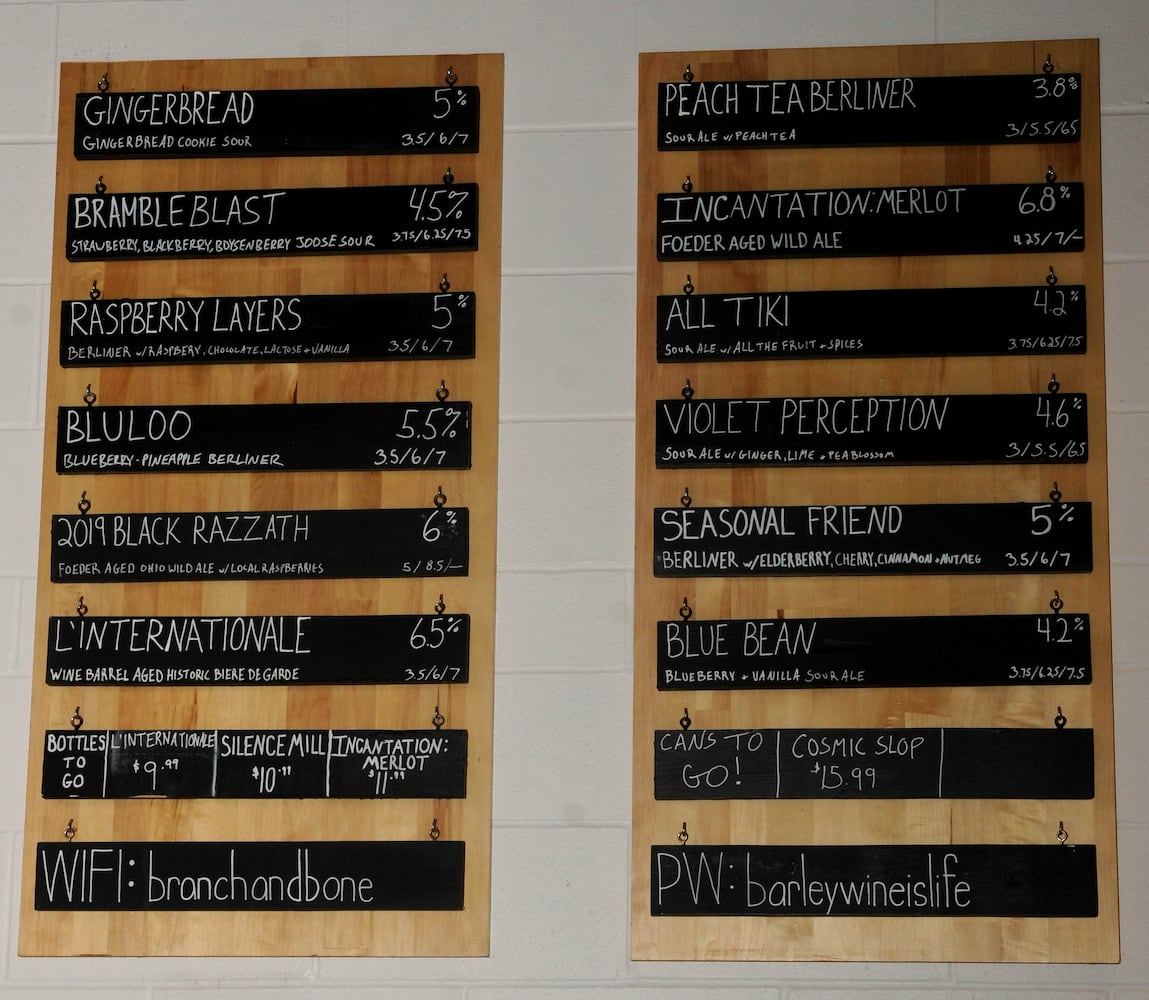 GINGERBREAD 5%
GINGERBREAD COOKIE SOUR 3.5/6/7
BRAMBLE BLAST 4.5%
STRAWBERRY, BLACKBERRY, BOYSENBERRY JOOSE SOUR 3.75/6.25/7.5
RASPBERRY LAYERS 5%
BERLINER w/RASPBERY, CHOCOLATE, LACTOSE + VANILLA 3.5/6/7
BLULOO 5.5%
BLUEBERRY-PINEAPPLE BERLINER 3.5/6/7
2019 BLACK RAZZATH 6%
FOEDER AGED OHIO WILD ALE w/LOCAL RASPBERRIES 5/8.5/—
L'INTERNATIONALE 6.5%
WINE BARREL AGED HISTORIC BIERE DE GARDE 3.5/6/7
BOTTLES TO GO
L'INTERNATIONALE
$9.99
SILENCE MILL
$10.99
INCANTATION: MERLOT
$11.99
WIFI: branchandbone
PEACH TEA BERLINER 3.8%
SOUR ALE w/PEACH TEA 3/5.5/6.5
INCANTATION: MERLOT 6.8%
FOEDER AGED WILD ALE 4.25/7/—
ALL TIKI 4.2%
SOUR ALE w/ALL THE FRUIT + SPICES 3.75/6.25/7.5
VIOLET PERCEPTION 4.6%
SOUR ALE w/GINGER, LIME + PEA BLOSSOM 3/5.5/6.5
SEASONAL FRIEND 5%
BERLINER w/ELDERBERRY, CHERRY, CINNAMON + NUTMEG 3.5/6/7
BLUE BEAN 4.2%
BLUEBERRY + VANILLA SOUR ALE 3.75/6.25/7.5
CANS TO GO!
COSMIC SLOP
$15.99
PW: barleywineislife